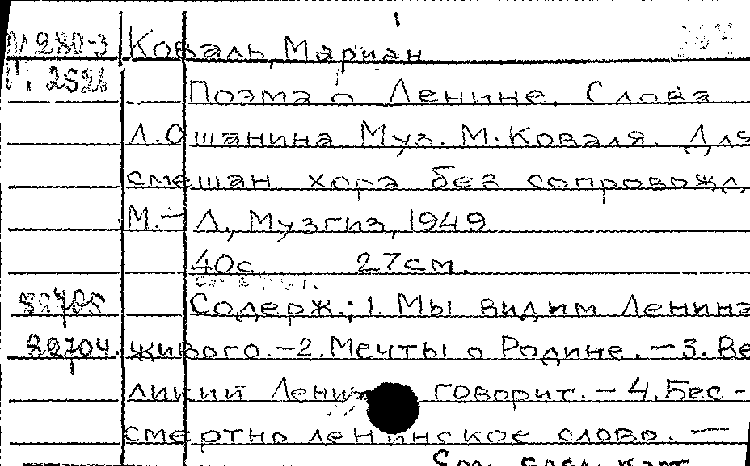 Коваль, Мариан
Поэма о Ленине. Слова
Л. Ошанина Муз. М. Коваля. Для
смешан хора без сопровожд.
М.-Л., Музгиз, 1949
40с 27см.
Содерж.: 1. Мы видим Ленина
живого. — 2. Мечты о Родине. — 3. Ве
88704.
ликий Ленин говорит. — 4. Бес-
смертно ленинское слово. —